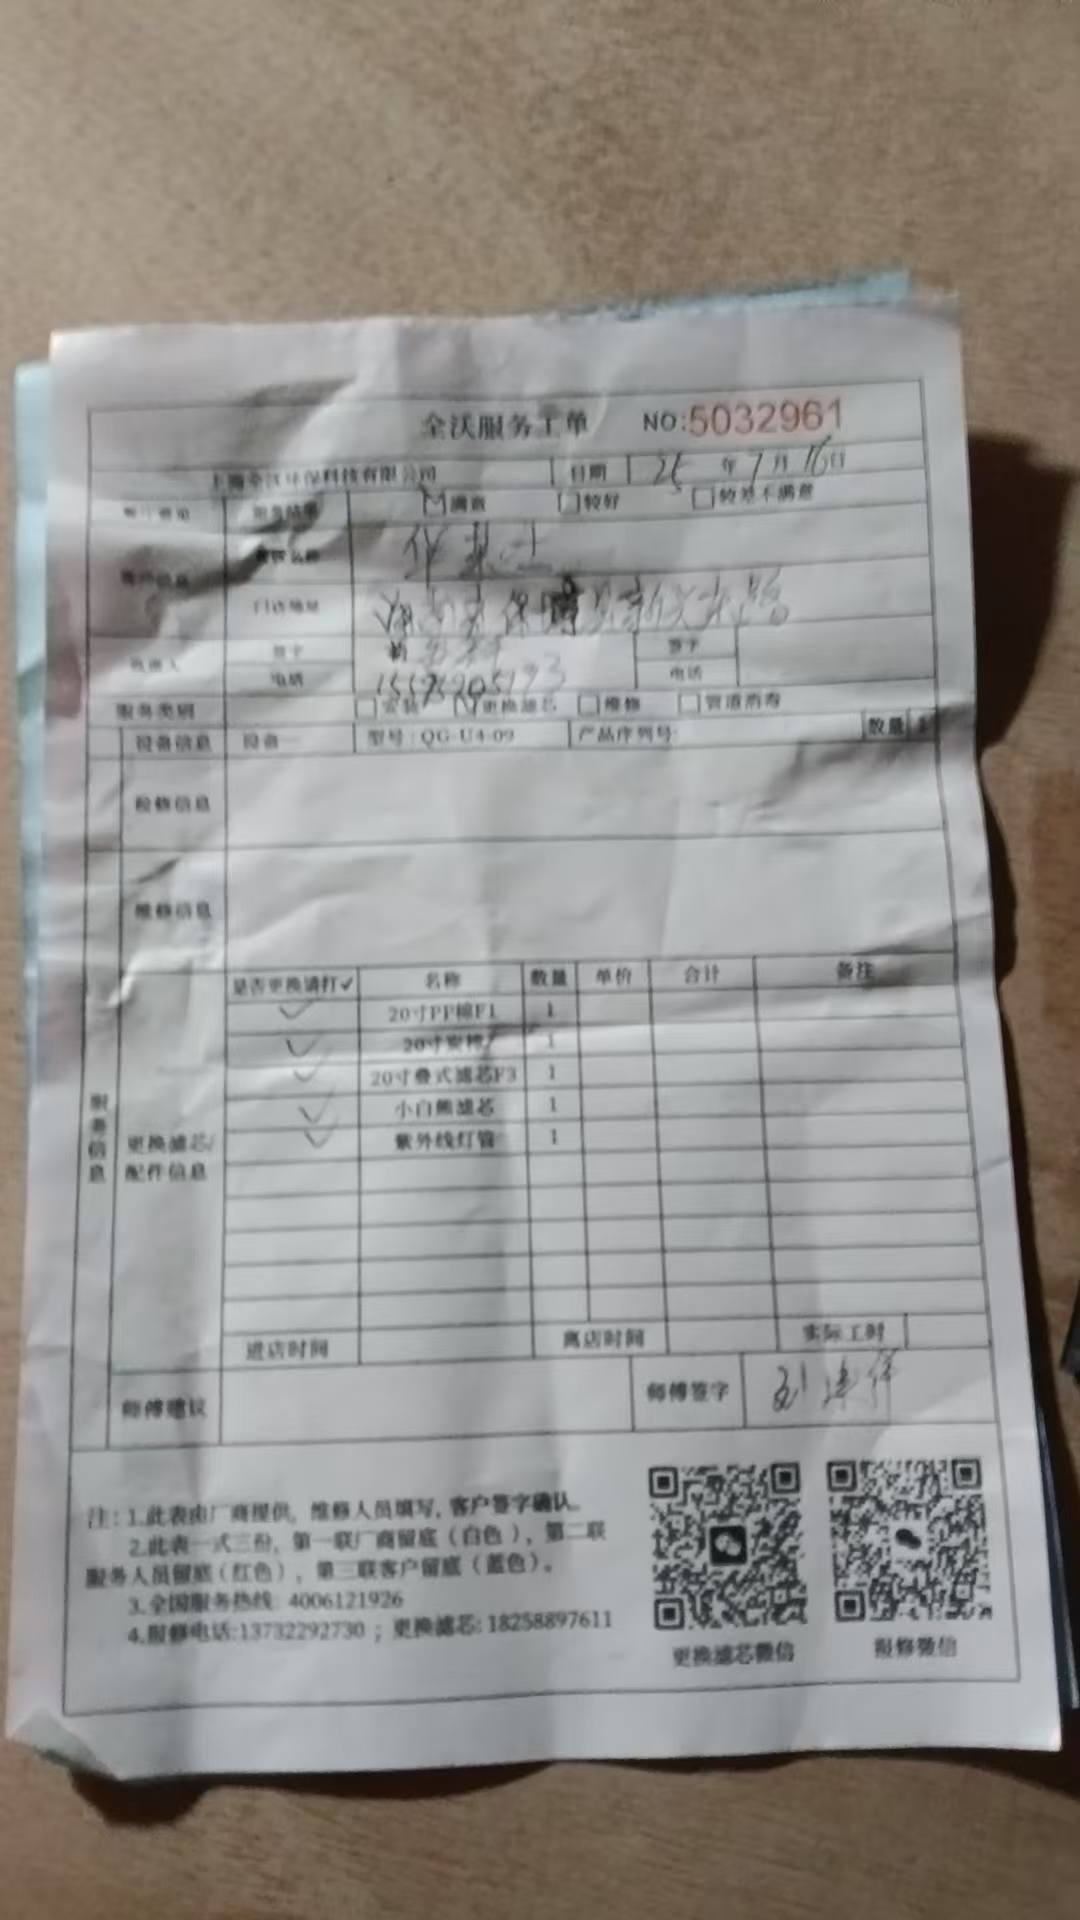 全沃服务工单 NO:5032961
上海全沃环保科技有限公司 日期 25 年 7 月 16 日
服务结果 满意 较好 较差不满意
客户信息
门店地址
签字 签字
电话 电话
服务类别 安装 更换滤芯 维修 管道消毒
设备信息 设备 型号:QG-U4-09 产品序列号: 数量 1
报修信息
维修信息
服务信息
更换滤芯/配件信息
是否更换请打✓ 名称 数量 单价 合计 备注
✓ 20寸PP棉F1 1
✓ 20寸炭棒 1
✓ 20寸叠式滤芯F3 1
✓ 小白熊滤芯 1
✓ 紫外线灯管 1
进店时间 离店时间 实际工时
师傅建议 师傅签字
注:1.此表由厂商提供,维修人员填写,客户签字确认。
2.此表一式三份,第一联厂商留底(白色),第二联
服务人员留底(红色),第三联客户留底(蓝色)。
3.全国服务热线: 4006121926
4.报修电话:13732292730 ; 更换滤芯: 18258897611
更换滤芯微信 报修微信